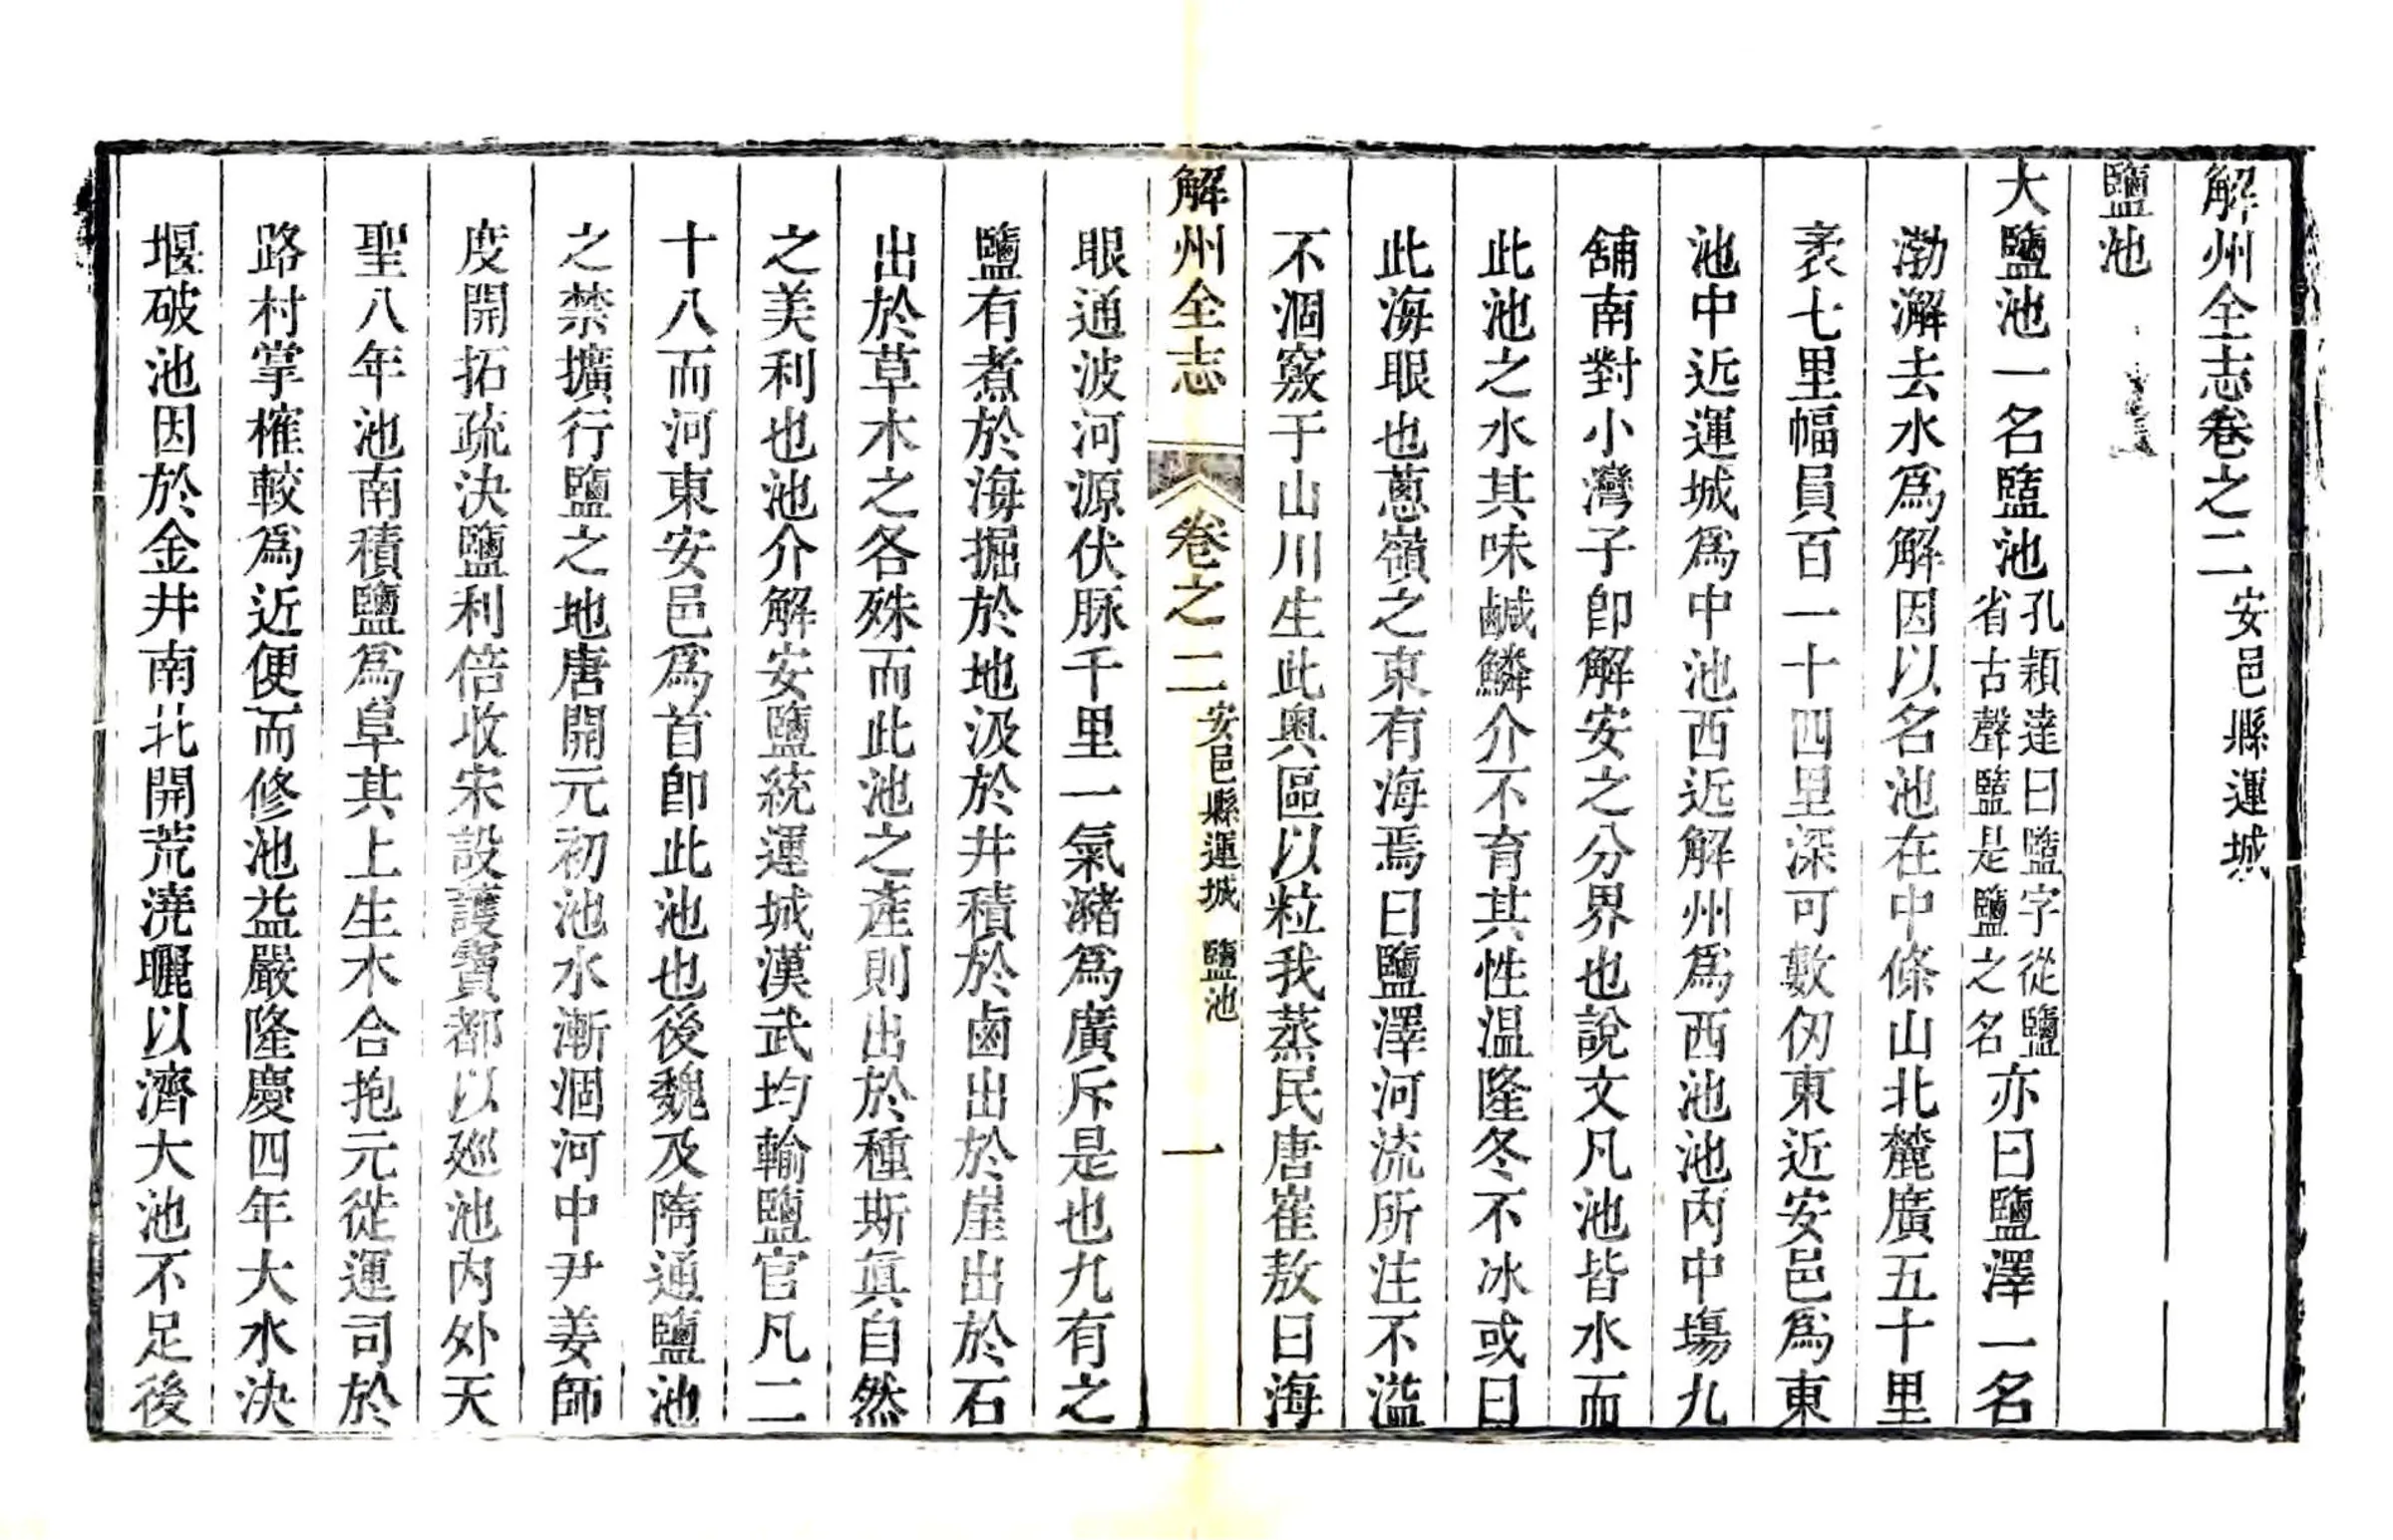 解州全志卷之二 安邑縣運城
鹽池
大鹽池一名盬池孔穎達曰盬字從鹽省古聲盬是鹽之名亦曰鹽澤一名
渤澥去水爲解因以名池在中條山北麓廣五十里
袤七里幅員百一十四里深可數仞東近安邑爲東
池中近運城爲中池西近解州爲西池池內中場九
舖南對小灣子卽解安之分界也說文凡池皆水而
此池之水其味鹹鱗介不育其性温隆冬不冰或曰
此海眼也蔥嶺之東有海焉曰鹽澤河流所注不溢
不涸竅于山川生此奧區以粒我蒸民唐崔敖曰海
解州全志 卷之二 安邑縣運城 鹽池 一
眼通波河源伏脉千里一氣瀦爲廣斥是也九有之
鹽有煮於海掘於地汲於井積於鹵出於崖出於石
出於草木之各殊而此池之產則出於種斯眞自然
之美利也池介解安鹽統運城漢武均輸鹽官凡二
十八而河東安邑爲首卽此池也後魏及隋通鹽池
之禁擴行鹽之地唐開元初池水漸涸河中尹姜師
度開拓疏決鹽利倍收宋設護寶都以廵池內外天
聖八年池南積鹽爲阜其上生木合抱元徙運司於
路村掌榷較爲近便而修池益嚴隆慶四年大水決
堰破池因於金井南北開荒澆曬以濟大池不足後